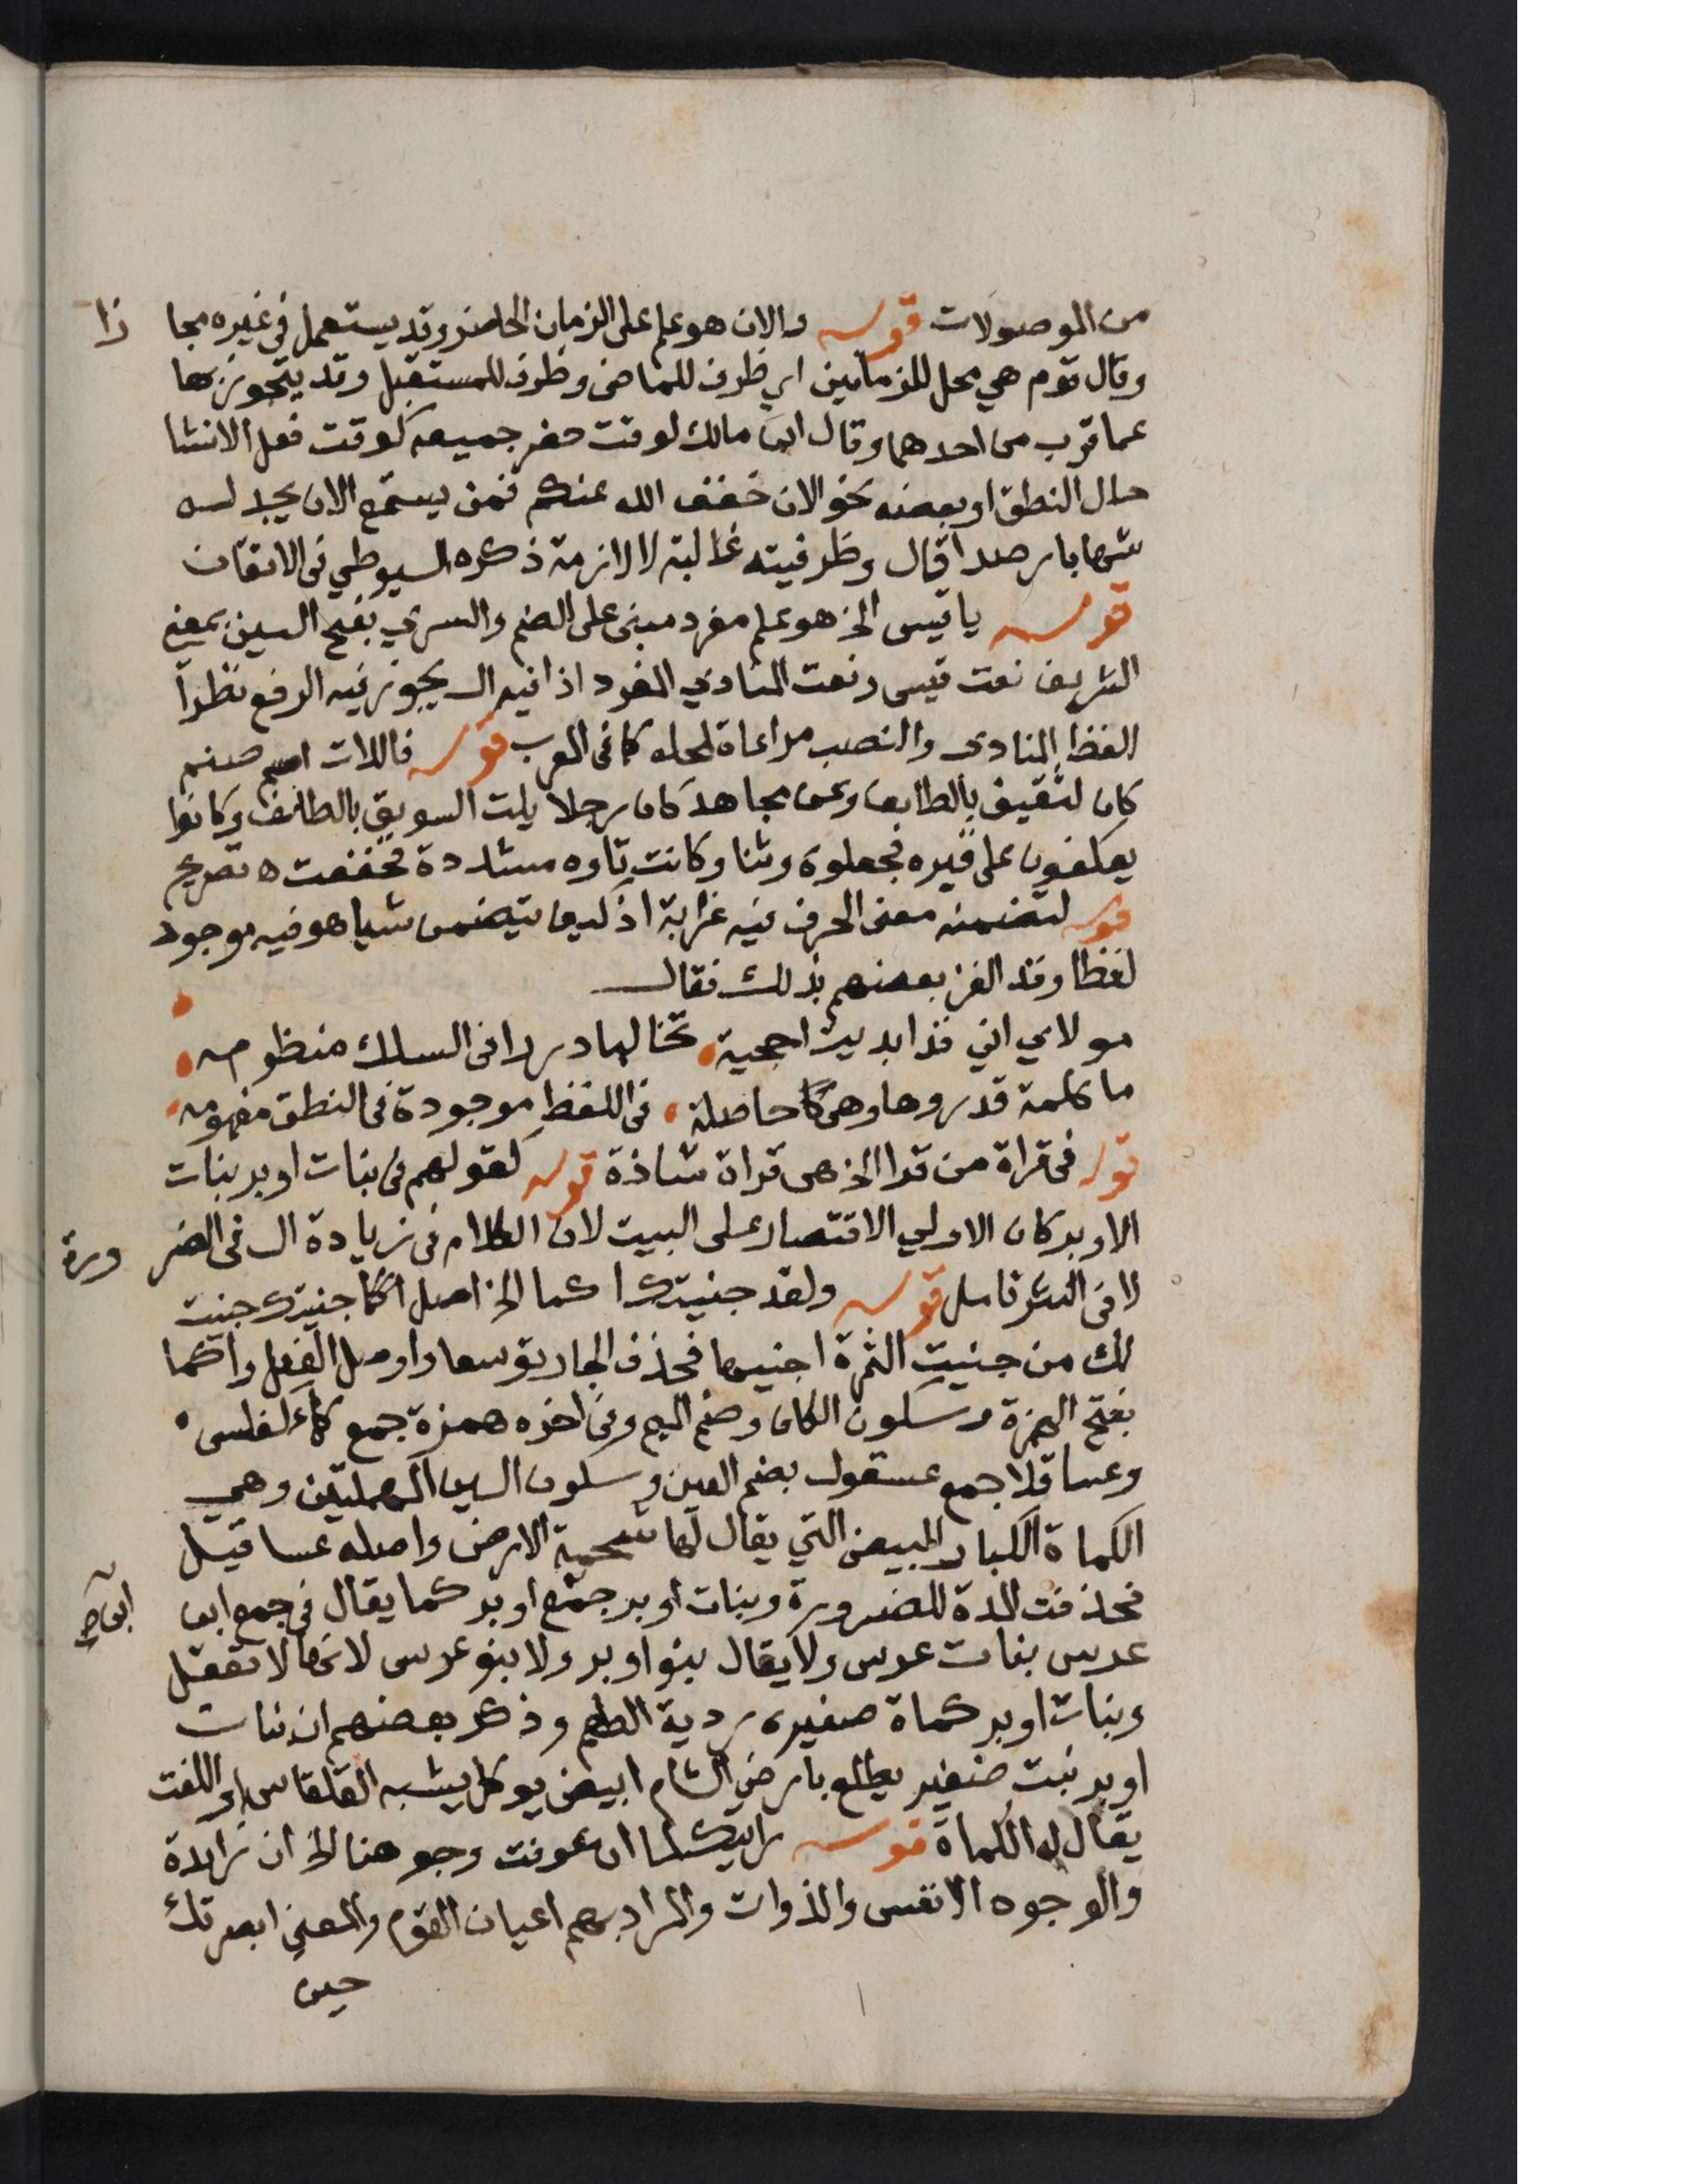 من الموصولات قوله والان هو علم على الزمان الحاضر وقد يستعمل في غيره مجا زا
وقال قوم هي محل للزمانين اي ظرف للماضى وظرف للمستقبل وقد يتجوز بها
عما قرب من احدهما وقال ابن مالك لوقت حضر جميعه كوقت فعل الانشا
حال النطق او بعضه نحو الان خفف الله عنكم فمن يستمع الان يجد له
شهابا رصدا قال وظرفيته غالبة لا لازمة ذكره السيوطي في الاتقان
قوله يا قيس الخ هو علم مفرد مبنى على الضم والسري بفتح السين بمعنى
الشريف نعت قيس ونعت المنادي المفرد اذا فيه ال يجوز فيه الرفع نظرا
للفظ المنادى والنصب مراعاة لمحله كما في المعرب قوله فاللات اسم صنم
كان لثقيف بالطايف وعن مجاهد كان رجلا يلت السويق بالطائف وكانوا
يعكفون على قبره فجعلوه وثنا وكانت تاوه مشددة فخففت ه تصريح
قوله لتضمنه معنى الحرف فيه غرابة اذ كيف يتضمن شيا هو فيه موجود
لفظا وقد الغز بعضهم بذلك فقال
مولاي اني قد ابديت احجية تخالها دررا في السلك منظومه
ما كلمة قدروها وهي حاصلة في اللفظ موجودة في النطق مفهومه
قوله في قراة من قرا الخ هى قراة شاذة قوله كقولهم في بنات اوبر بنات
الاوبر كان الاولي الاقتصار على البيت لان الكلام في زيادة ال في الضر ورة
لا في النثر تامل قوله ولقد جنيتك اكما الخ اصل اكما جنيتك جنيت
لك من جنيت الثمرة اجنيها فحذف الجار توسعا واوصل الفعل واكما
بفتح الهمزة وسكون الكاف وضم الميم وفي اخره همزة جمع كمأ كفلس
وعساقلا جمع عسقول بضم العين وسكون السين المهملتين وهي
الكماة الكبار البيض التي يقال لها شحمة الارض واصله عساقيل
فحذفت المدة للضرورة وبنات اوبر جمع اوبر كما يقال في جمع ابن ابن صح
عرس بنات عرس ولا يقال بنو اوبر ولا بنو عرس لانها لا تعقل
وبنات اوبر كماة صغيره ردية الطعم وذكر بعضهم ان بنات
اوبر نبت صغير يطلع بارض الشام ابيض يوكل يشبه القلقاس او اللفت
يقال له الكماة قوله رايتك لما ان عرفت وجوهنا الخ ان زايدة
والوجوه الانفس والذوات والمراد بهم اعيان القوم والمعنى ابصرتك
حين